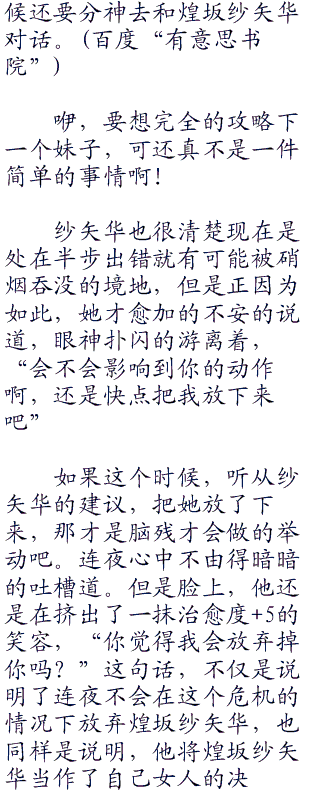 候还要分神去和煌坂纱矢华
对话。(百度“有意思书
院”)
咿，要想完全的攻略下
一个妹子，可还真不是一件
简单的事情啊!
纱矢华也很清楚现在是
处在半步出错就有可能被硝
烟吞没的境地，但是正因为
如此，她才愈加的不安的说
道，眼神扑闪的游离着，
“会不会影响到你的动作
啊，还是快点把我放下来
吧”
如果这个时候，听从纱
矢华的建议，把她放了下
来，那才是脑残才会做的举
动吧。连夜心中不由得暗暗
的吐槽道。但是脸上，他还
是在挤出了一抹治愈度+5的
笑容，“你觉得我会放弃掉
你吗？”这句话，不仅是说
明了连夜不会在这个危机的
情况下放弃煌坂纱矢华，也
同样是说明，他将煌坂纱矢
华当作了自己女人的决